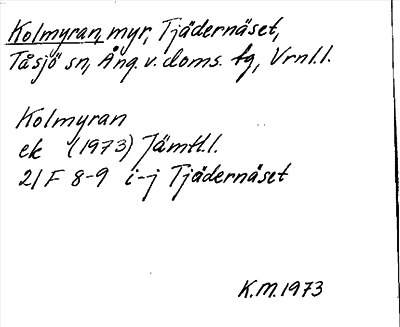 Kolmyran, myr, Tjädernäset,
Tåsjö sn, Ång. v. doms. tg, Vrnl.l.
Kolmyran
ek (1973) Jämtl.l.
21F 8-9 i-j Tjädernäset
K.M.1973